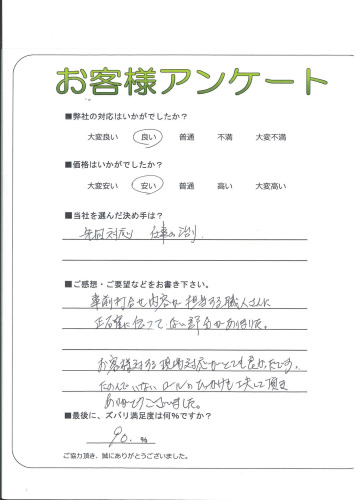 お客様アンケート
■弊社の対応はいかがでしたか?
大変良い 良い 普通 不満 大変不満
■価格はいかがでしたか?
大変安い 安い 普通 高い 大変高い
■当社を選んだ決め手は?
対応 仕事の
■ご感想・ご要望などをお書き下さい。
事前打合せ内容が担当する職人さんに
正確に伝って ない部分がありました。
お客様対する現場対応がとても良かったです。
たのんでいない の も 頂き
ありがとうございました。
■最後に、ズバリ満足度は何%ですか?
90. %
ご協力頂き、誠にありがとうございました。